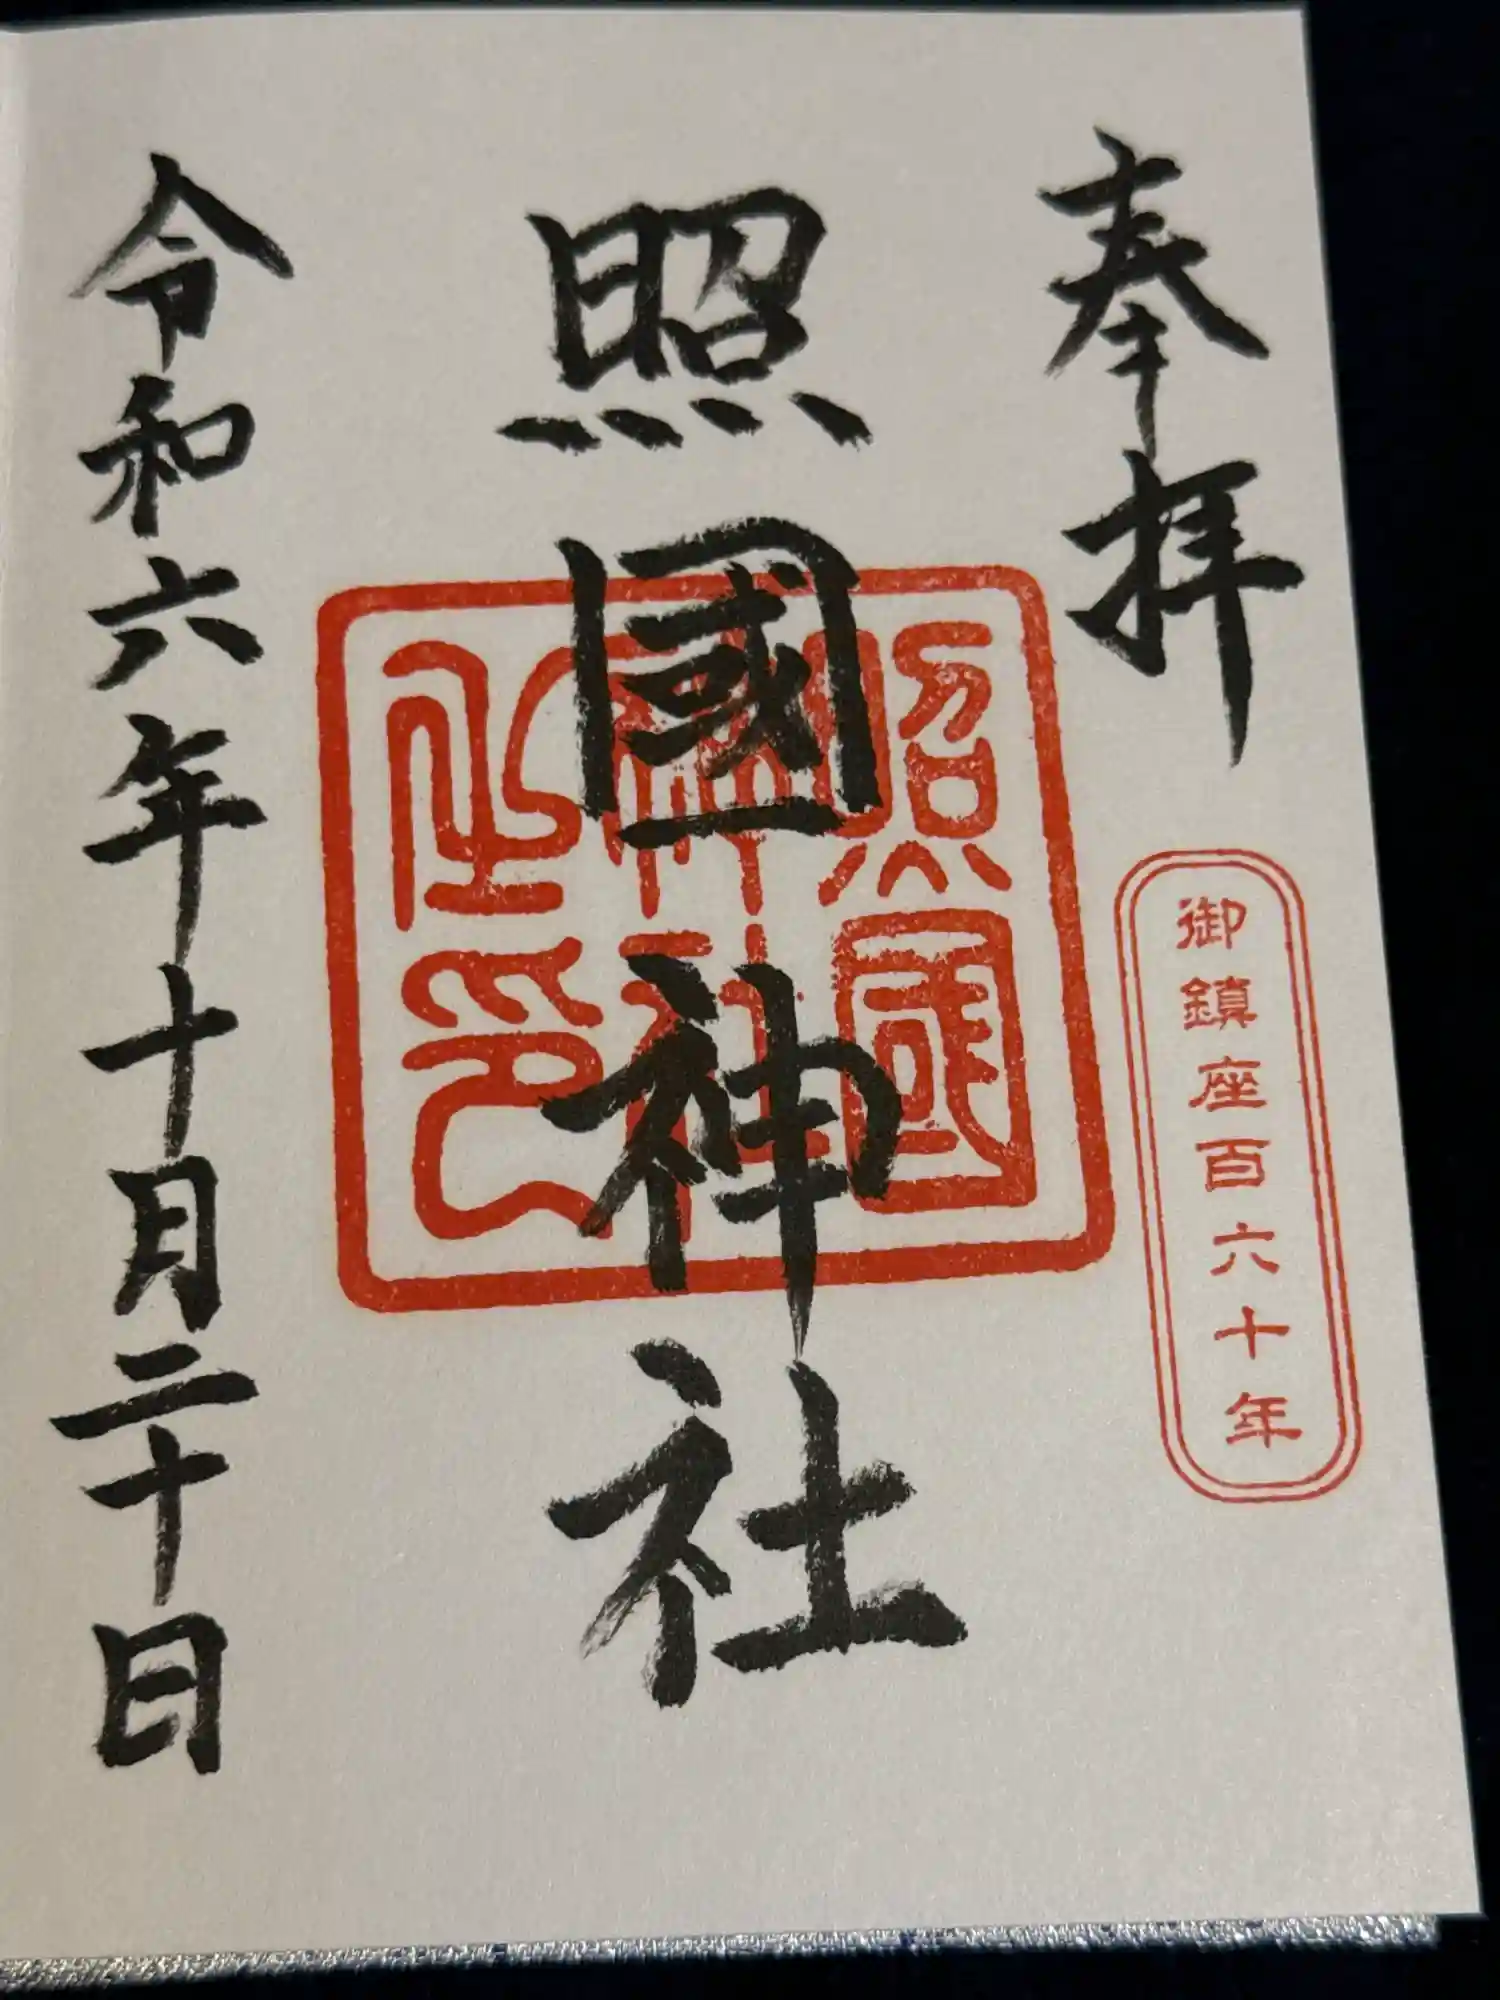 奉拝
御鎮座百六十年
照國神社
照國
神社
之印
令和六年十月二十日